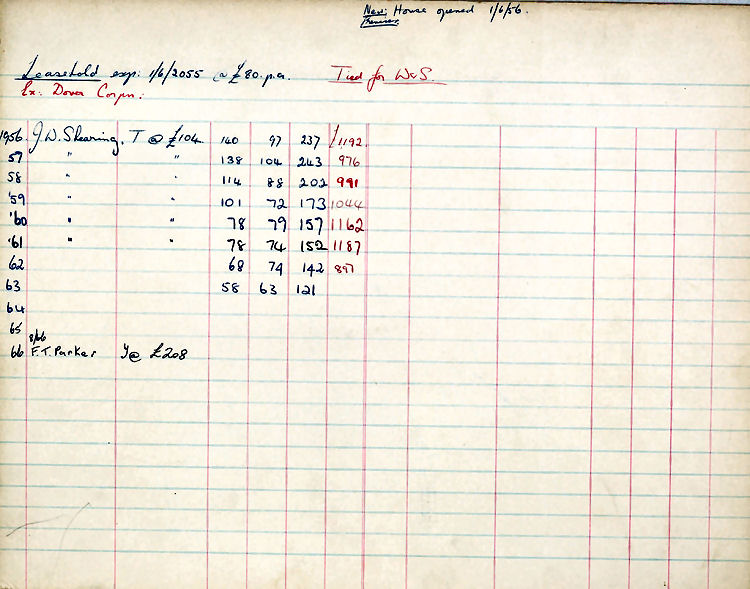 New House opened 1/6/56.
Leasehold exp: 1/6/2055 @ £80. p.a. Tied for W&S.
Ex: Dover Corpn:
1956. J.W. Shearing. T @ £104 140 97 237 £1192.
57 " " 138 104 243 976
58 " " 114 88 202 991
'59 " " 101 72 173 1044
'60 " " 78 79 157 1162
'61 " " 78 74 152 1187
62 68 74 142 897
63 58 63 121
64
65
8/66
66 F.T. Parker Y@ £208